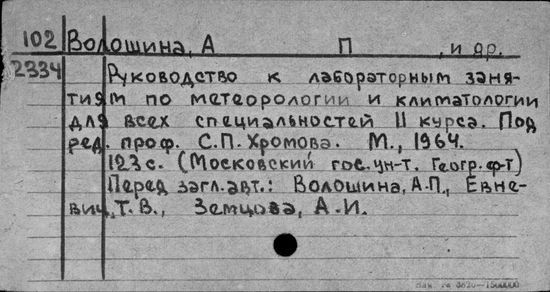 102 Волошина, А П , и др.
2334 Руководство к лабораторным заня-
тиям по метеорологии и климатологии
для всех специальностей II курса. Под
ред. проф. С.П. Хромова. М., 1964.
123 с. (Московский гос. ун-т. Геогр. ф-т)
Перед загл. авт.: Волошина, А.П., Евне-
вич, Т.В., Земцова, А.И.